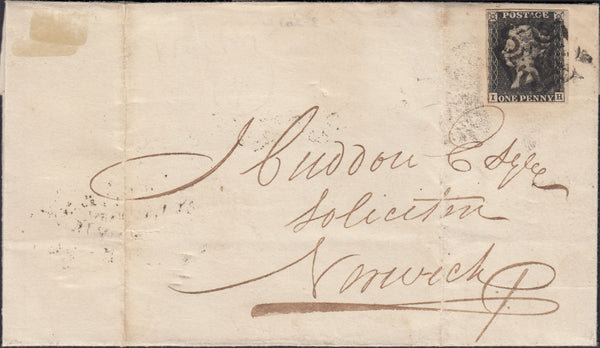 POSTAGE
I H
ONE PENNY
J Cuddon Esqre
Solicitor
Norwich